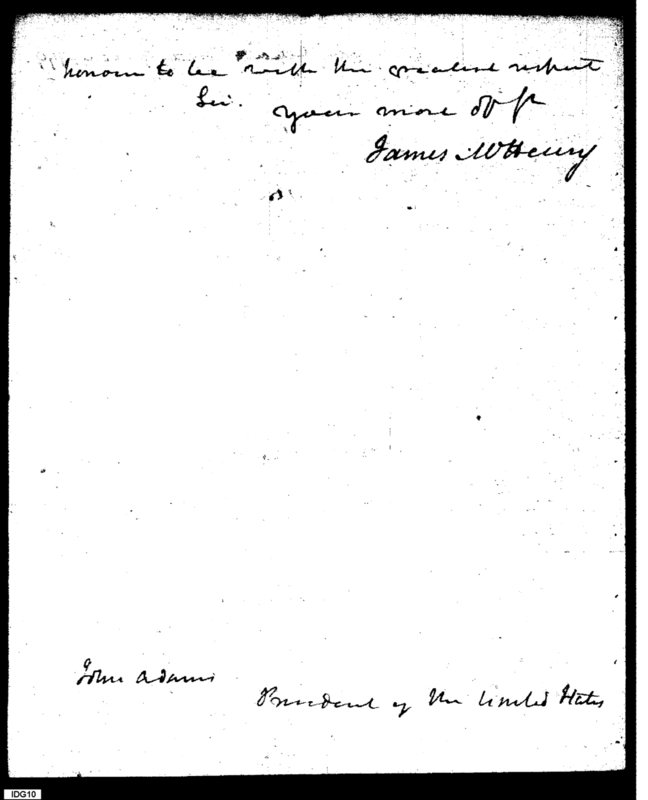 honour to be with the greatest respect
Sir.
your most obt
James McHenry
John Adams
President of the United States
IDG10